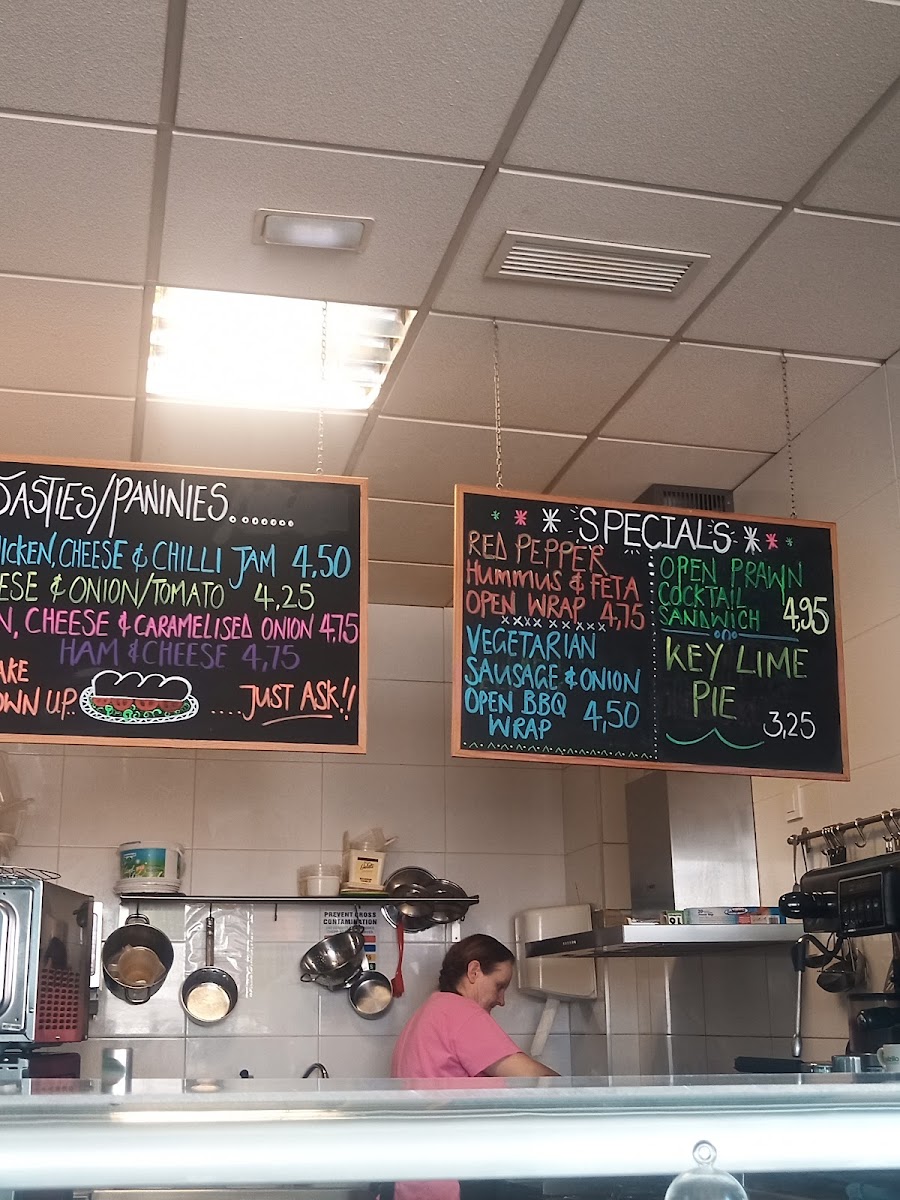 OASTIES/PANINIES.......
HICKEN, CHEESE & CHILLI JAM 4,50
ESE & ONION/TOMATO 4,25
N, CHEESE & CARAMELISED ONION 4,75
HAM & CHEESE 4,75
AKE
OWN UP..
....JUST ASK!!
SPECIALS
RED PEPPER
HUMMUS & FETA
OPEN WRAP 4,75
VEGETARIAN
SAUSAGE & ONION
OPEN BBQ
WRAP 4,50
OPEN PRAWN
COCKTAIL
SANDWICH 4,95
KEY LIME
PIE
3,25
PREVENT CROSS
CONTAMINATION